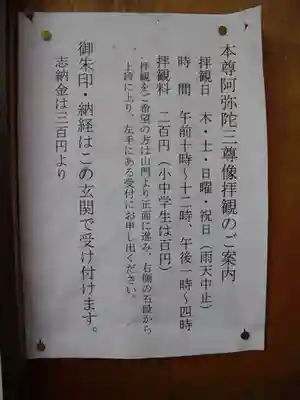 本尊阿弥陀三尊像拝観のご案内
拝観日　木・土・日曜・祝日（雨天中止）
時　間　午前十時～十二時、午後一時～四時
拝観料　二百円（小中学生は百円）
拝観をご希望の方は山門より正面に進み、右側の石段から
上段に上り、左手にある受付にお申し出ください。
御朱印・納経はこの玄関で受け付けます。
志納金は三百円より